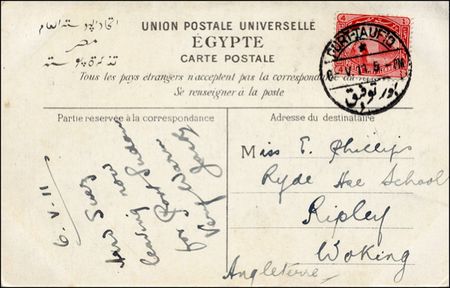 اتحاد البوستة العام
مصر
تذكرة بوستة
UNION POSTALE UNIVERSELLE
ÉGYPTE
CARTE POSTALE
Tous les pays étrangers n'acceptent pas la correspondance
Se renseigner à la poste
PORT-TAUFIQ
V 11 5 - PM
بور توفيق
Partie réservée à la correspondance
6. V. 11
Dear
leaving now
for Port Sudan
Very warm
Adresse du destinataire
Miss E. Phillips
Ryde Hse School
Ripley
Woking
Angleterre